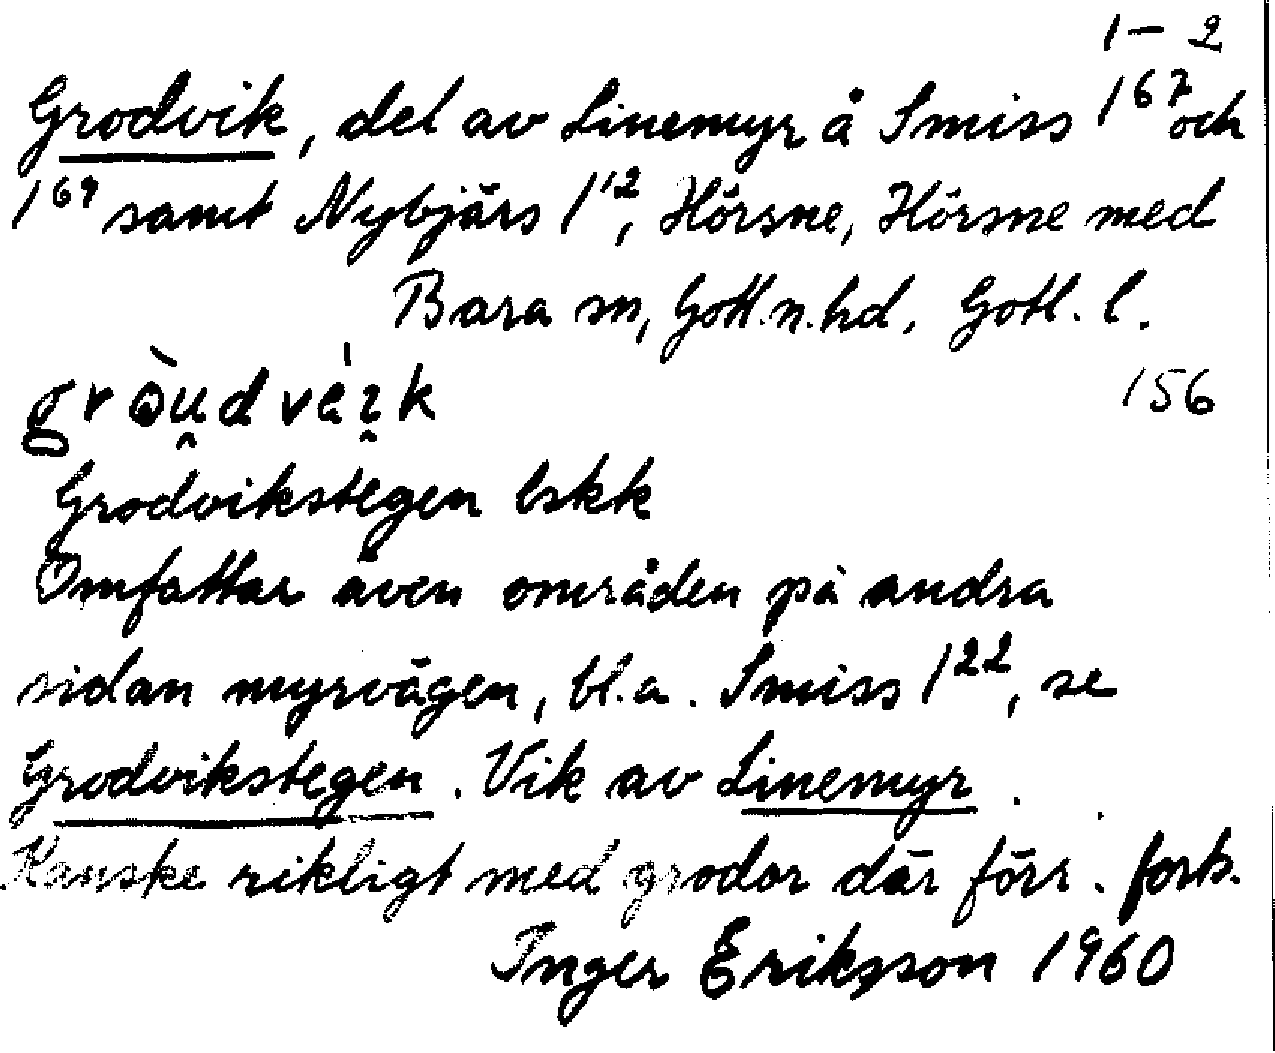 1 – 2
Grodvik, del av Linemyr å Smiss 1⁶⁷ och
1⁶⁹ samt Nybjärs 1¹², Hörsne, Hörsne med
Bara sn, Gotl.n.hd. Gotl. l.
156
Grodvikstegen lskk
Omfattar även områden på andra
sidan myrvägen, bl.a. Smiss 1²², se
Grodvikstegen. Vik av Linemyr.
Kanske rikligt med grodor där förr. forts.
Inger Eriksson 1960